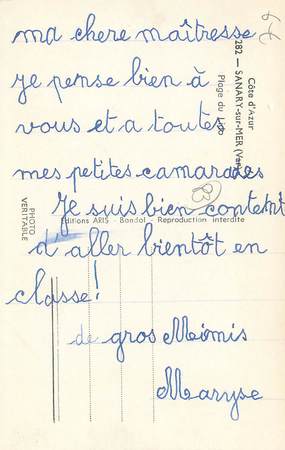 ma chere maîtresse
je pense bien à
vous et a toutes
mes petites camarades
Je suis bien content
d'aller bientôt en
classe!
de gros Mimis
Maryse
Côte d'Azur
282 — SANARY-sur-MER (Var)
Plage du
83
PHOTO
VERITABLE
Editions ARIS - Bandol - Reproduction Interdite